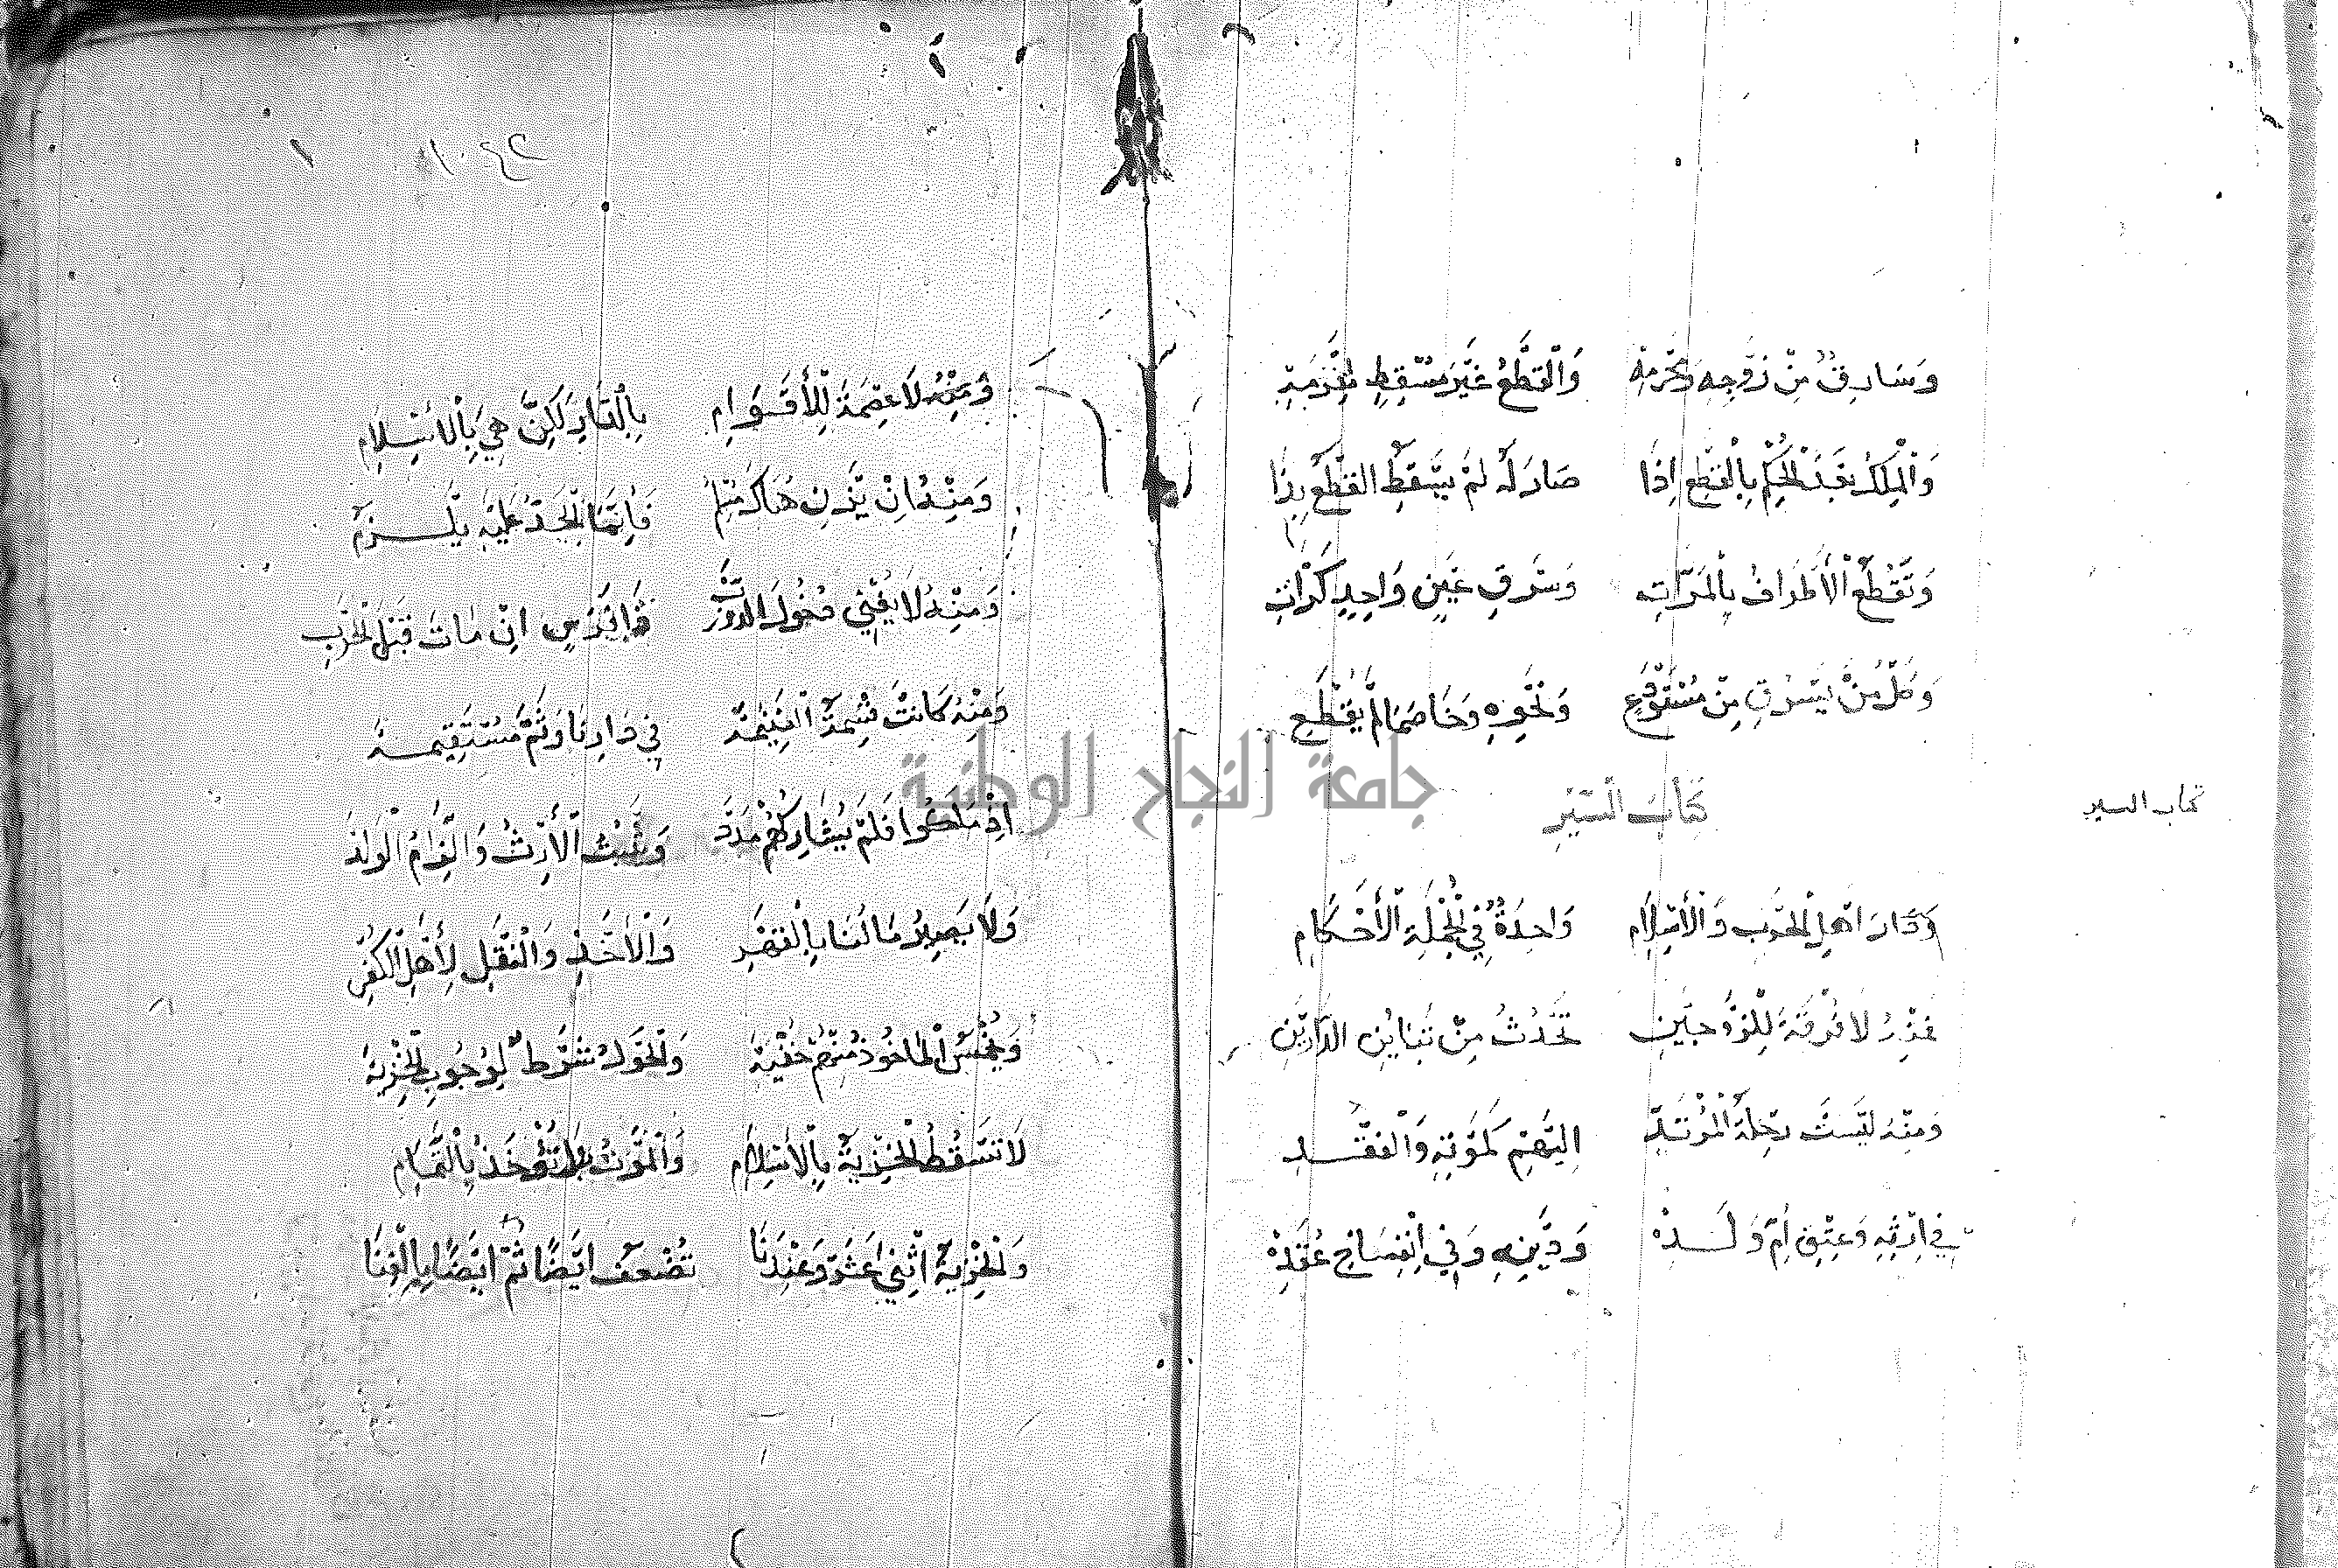 وَسَارِقٌ مِنْ زَوْجِهِ وَمَحْرَمِهِ وَالْقَطْعُ غَيْرُ مُسْقِطٍ لِغُرْمِهِ
وَالْمِلْكُ بَعْدَ الْحُكْمِ بِالْقَطْعِ اِذَا صَارَ لَهُ لَمْ يَسْقُطِ الْقَطْعُ بِذَا
وَتُقْطَعُ الْأَطْرَافُ بِالْمَرَّاتِ وَسَرْقِ عَيْنٍ وَاحِدٍ كَرَّاتِ
وَكُلُّ مَنْ يَسْرِقُ مِنْ مُسْتَوْدَعِ وَنَحْوِهِ وَخَاصَمَا لَمْ يُقْطَعِ
كِتَابُ السِّيَرِ
كتاب السير
وَدَارُ اَهْلِ الْحَرْبِ وَالْاِسْلَامِ وَاحِدَةٌ فِي جُمْلَةِ الْأَحْكَامِ
فَمِنْهُ لَا فُرْقَةَ لِلزَّوْجَيْنِ تَحْدُثُ مِنْ تَبَايُنِ الدَّارَيْنِ
وَمِنْهُ لَيْسَتْ رِحْلَةُ الْمُرْتَدِّ اِلَيْهِمْ كَمَوْتِهِ وَالْفَقْدِ
فِي اِرْثِهِ وَعِتْقِ اُمِّ وَلَدِهْ وَدَيْنِهِ وَفِي انْفِسَاخِ عَقْدِهْ
٢٤٠١ ١
وَمِنْهُ لَا عِصْمَةَ لِلْأَقْوَامِ بِالدَّارِ لَكِنْ هِيَ بِالْاِسْلَامِ
وَمِنْهُ اِنْ يَزْنِ هُنَاكَ مُسْلِمُ فَاِنَّمَا الْحَدُّ عَلَيْهِ يَلْزَمُ
وَمِنْهُ لَا يُغْنِي دُخُولُ الدَّرْبِ فَرَسٍ اِنْ مَاتَ قَبْلَ الْحَرْبِ
وَمِنْهُ كَانَتْ قِسْمَةُ الْغَنِيمَةْ فِي دَارِنَا وَثَمَّ مُسْتَقِيمَةْ
اِذْ مَلَكُوا فَلَمْ يُشَارِكْهُمْ مَدَدْ وَيَثْبُتُ الْاِرْثُ وَالْوَلَدْ
وَلَا يَصِيرُ مَا لَنَا بِالْقَهْرِ وَالْأَخْذِ وَالنَّقْلِ لِأَهْلِ الْكُفْرِ
وَيُخْمَسُ الْمَأْخُوذُ مِنْهُمْ خُفْيَةْ وَالْحَوْلُ شَرْطٌ لِوُجُوبِ الْجِزْيَةْ
لَا تَسْقُطُ الْجِزْيَةُ بِالْاِسْلَامِ وَالْمَوْتُ بَلْ تُؤْخَذُ بِالتَّمَامِ
وَالْجِزْيَةُ اثْنَيْ عَشَرَ وَعِنْدَنَا تُضْعَفُ اَيْضًا ثُمَّ اَيْضًا بِالْغِنَا
جامعة النجاح الوطنية